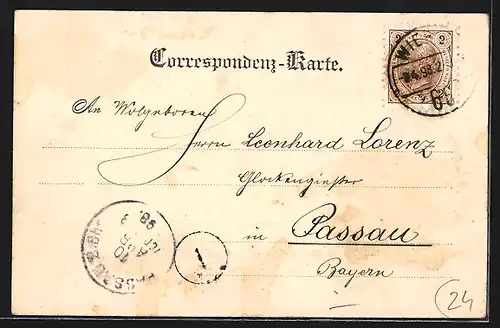 2 2
WIE
Correspondenz-Karte.
An Wolgeboren
Herrn Leonhard Lorenz
Glockengießer
in Passau
Bayern
1
24